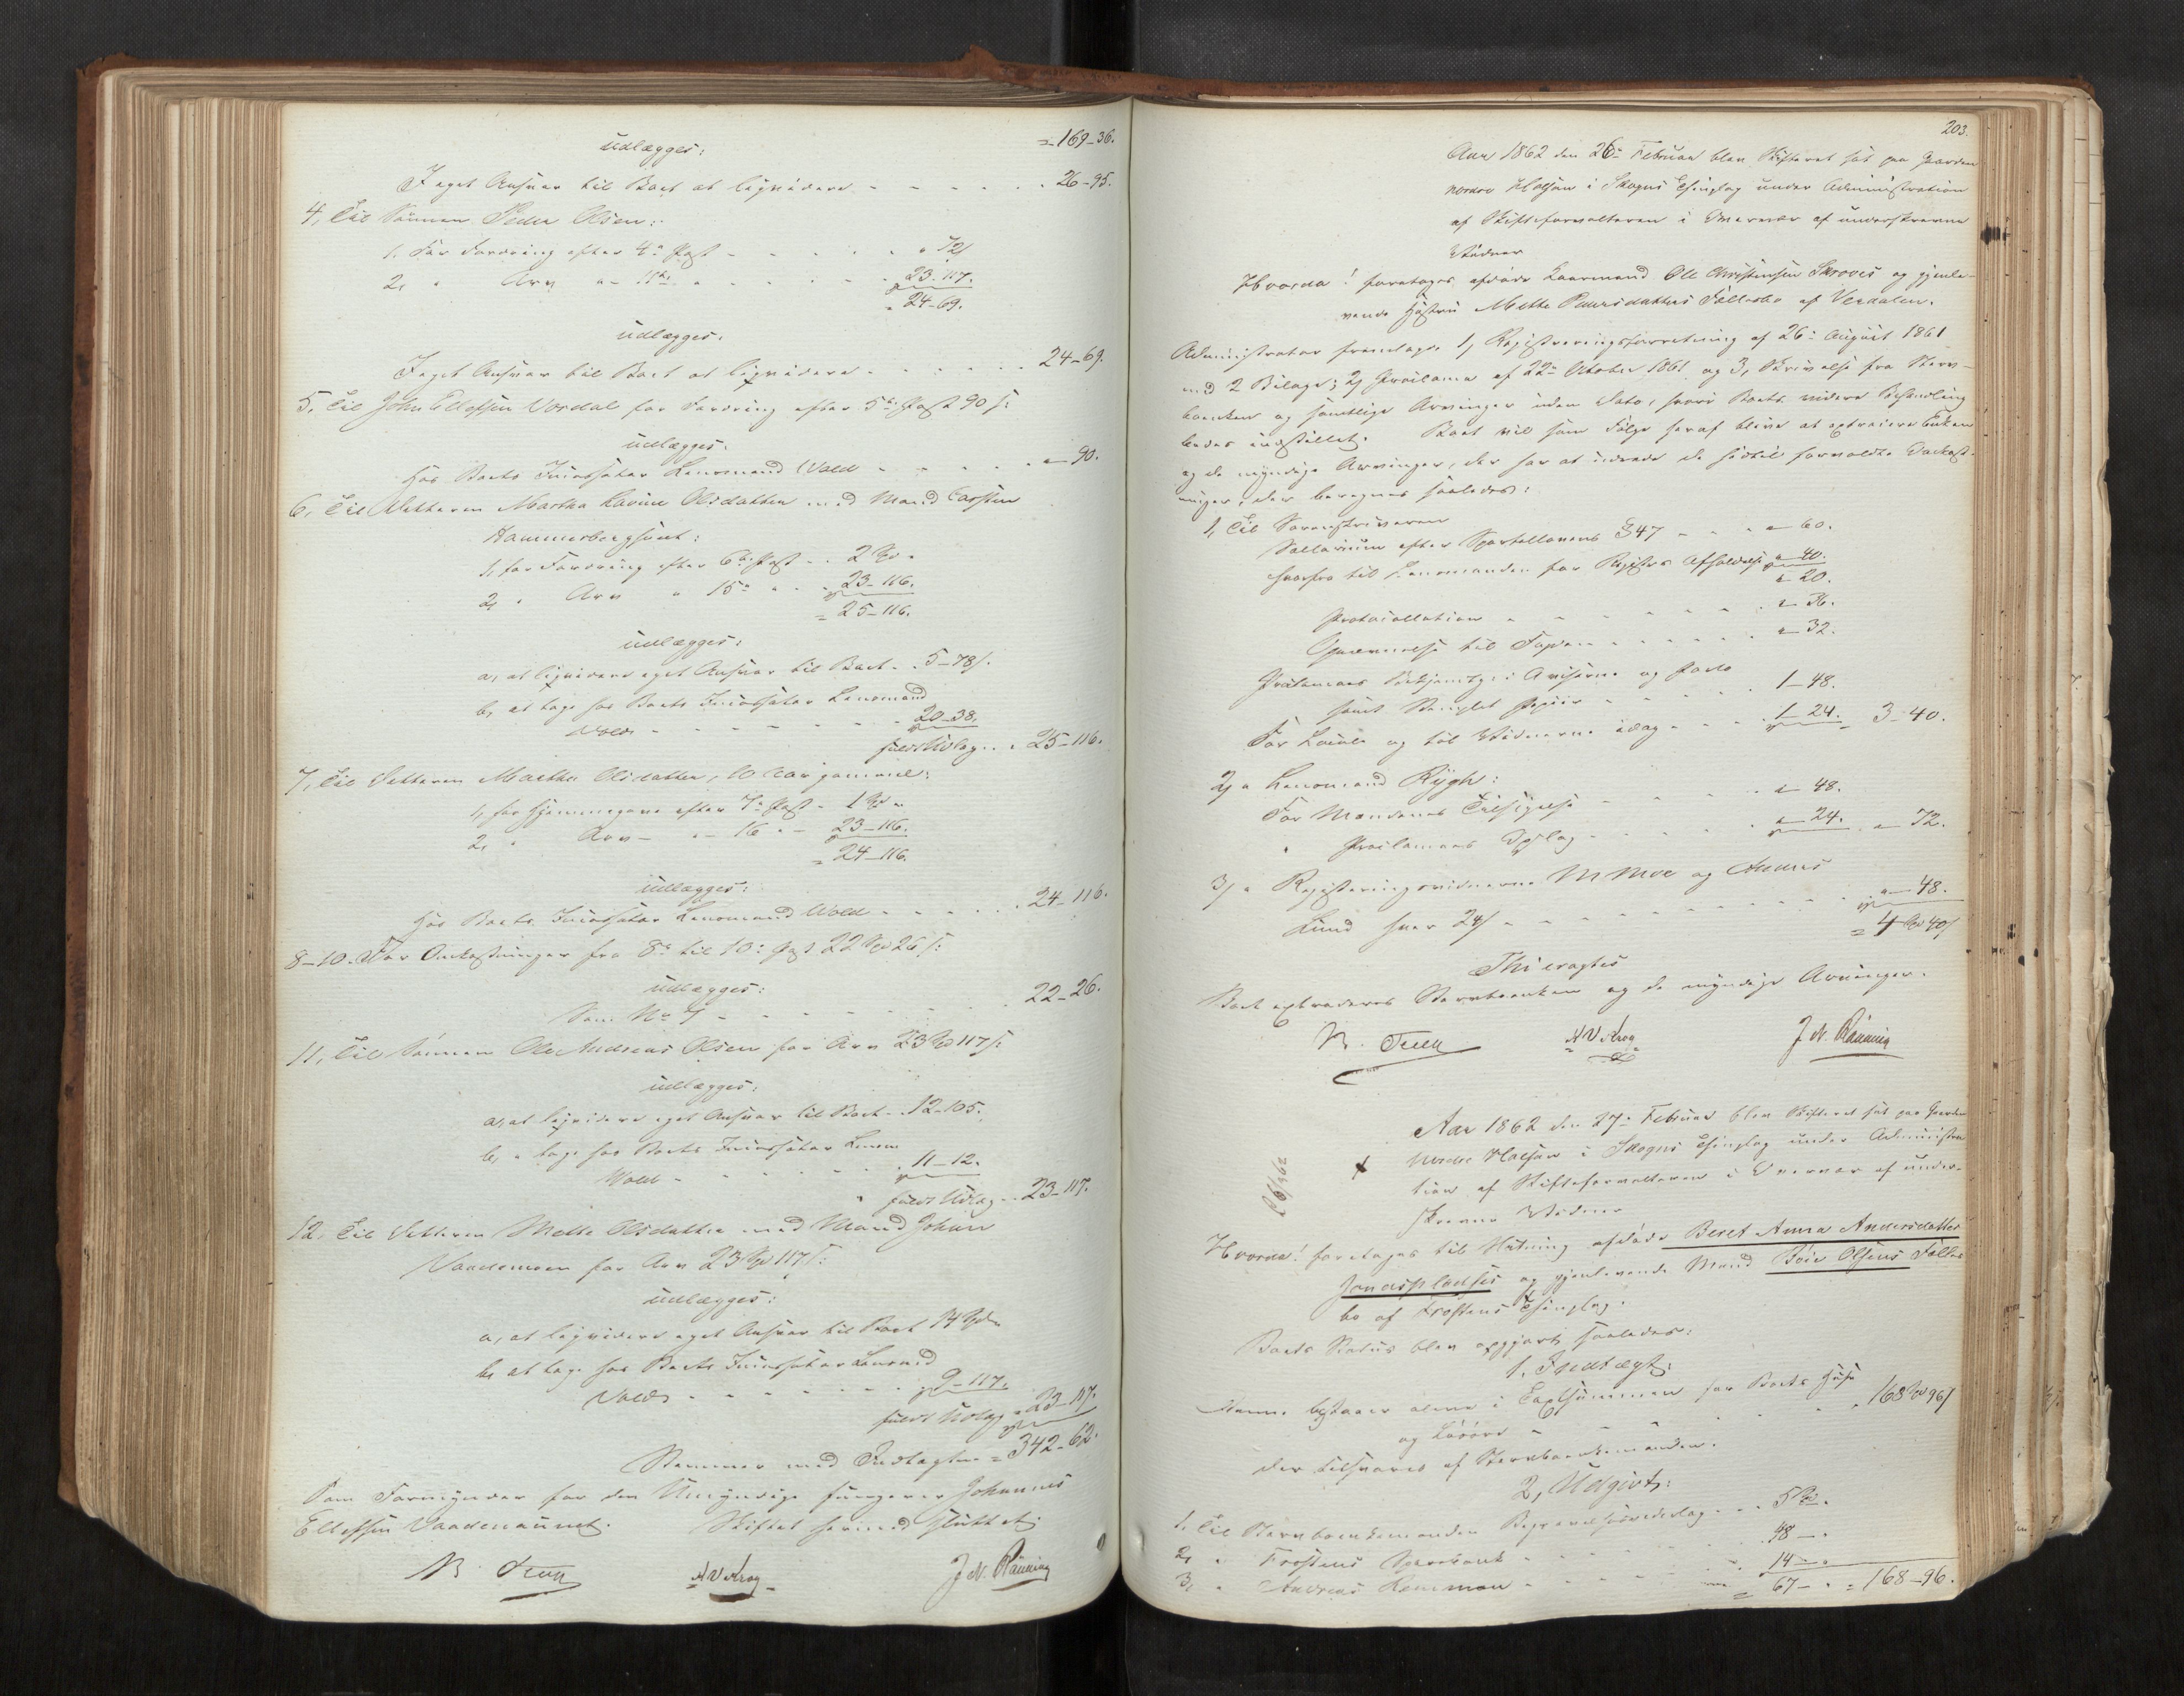 = 169-36.
udlægges:
I eget Ansvar til Boet at liqvidere - - - - - - 26-95.
4, Til Sønnen Peder Olsen:
1, For Fordring efter 4de Post - - - - - " 72/
2, " Arv " " 11te " - - - - 23-117.
= 24-69.
udlægges.
I eget Ansvar til Boet at liqvidere - - - - - - 24-69.
5, Til John Ellefsen Vordal for Fordring efter 5te Post 90 s:
udlægges.
Hos Boets Incassator Lensmand Wold - - - - - " 90.
6, Til Datteren Martha Lovise Olsdatter med Mand Carsten
Hammersbergaunet:
1, for Fordring efter 6te Post - - 2 Spd "
2, " Arv " 15de " - - 23-116.
= 25-116.
udlægges:
a, at liqvidere eget Ansvar til Boet - - 5-78/.
b, at tage hos Boets Incassator Lensmand
Wold - - - - - - 20-38.
fuldt Udlæg - - 25-116.
7, Til Datteren Martha Olsdatter, 10 Aar gammel:
1, for Hjemmegave efter 7de Post - 1 Spd "
2, " Arv - " - 16 " - 23-116.
= 24-116.
udlægges:
Hos Boets Incassator Lensmand Wold - - - - - 24-116.
8-10. For Omkostninger fra 8de til 10de Post 22 Spd 26 s:
udlægges:
Som No 7 - - - - - - - 22-26.
11, Til Sønnen Ole Andreas Olsen for Arv 23 Spd 117 s:
udlægges:
a, at liqvidere eget Ansvar til Boet - 12-105.
b, " tage hos Boets Incassator Lensm
Wold - - - - - 11-12.
fuldt Udlæg - - 23-117.
12, Til Datteren Mette Olsdatter med Mand Johan
Vaademoen for Arv 23 Spd 117 s:
udlægges:
a, at liqvidere eget Ansvar til Boet 14 Spd "
b, at tage hos Boets Incassator Lensmd
Wold - - - - - - 9-117.
fuldt Udlæg = 23-117.
Stemmer med Indtægten = 342-62.
Som Formynder for den Umyndige fungerer Johannes
Ellefsen Vaadenaunet. Skiftet hermed sluttet.
AV Krog J N. Rønning
203.
Aar 1862 den 26de Februar blev Skifteret sat paa Gaarden
nordre Halsan i Skogns Thinglag under Administration
af Skifteforvalteren i Overvær af underskrevne
Vidner
Hvorda! foretages afdøde Kaarmand Ole Christensen Skroves og gjenle-
vende Hustru Mette Pedersdatters Fællesbo af Verdalen.
Administrator fremlagde 1, Registreringsforretning af 26de August 1861
med 2 Bilage; 2, Proclama af 22de October 1861 og 3, Skrivelse fra Stervboenken og samtlige Arvinger uden Dato, hvori Boets videre Behandling
bedes indstillet. Boet vil som Følge heraf blive at extradere Enken
og de myndige Arvinger, der har at udrede de hidtil forvoldte Omkost-
ninger, der beregnes saaledes:
1, Til Sorenskriveren
Sallarium efter Sportellovens § 47 - - " 60.
herfra til Lensmanden for Registr. Afholdelse " 40.
" 20.
Protocollation - - - - - - - " 36.
Gjennemse til Tasien - - - - - - " 32.
Proclamaets Bekjentgj. i Aviserne og Porto
samt stemplet Papiir - - - - - 1-48.
For Locale og til Vidnerne idag - - - - 1-24. 3-40.
2, " Lensmand Rygh:
For Mændenes Tilsigelse - - - - " 48.
" Proclamaets Opslag - - - - - " 24. " 72.
3, " Registreringsvidnerne M Moe og Anders
Lund hver 24/ - - - - - - - - - " 48.
= 4 Spd 40/
Thi eragtes
Boet extraderes Stervboenken og de myndige Arvinger.
AV Krog J N. Rønning
Aar 1862 den 27de Februar blev Skifteret sat paa Gaarden
Nordre Halsan i Skogns Thinglag under Administra
tion af Skifteforvalteren i Overvær af under-
skrevne Vidner
Hvorda! foretages til Slutning afdøde Beret Anna Andersdatter
Jonasplads og gjenlevende Mand Boie Olsens Fælles
bo af Frostens Thinglag.
Boets Status blev opgjort saaledes:
1, Indtægt:
Denne bestaaer alene i Taxtsummen for Boets Huse
og Løsøre - - - - - - - 168 Spd 96/
der tilsvares af Stervboenkemanden.
2, Udgivt:
1, Til Stervboenkemanden Begravelsesvederlag - - 5 Spd "
2, " Frostens Sparebank - - - - - - 48 - "
3, " Andreas Renmæn - - - - - - 14 - "
= 67 - " = 168-96.